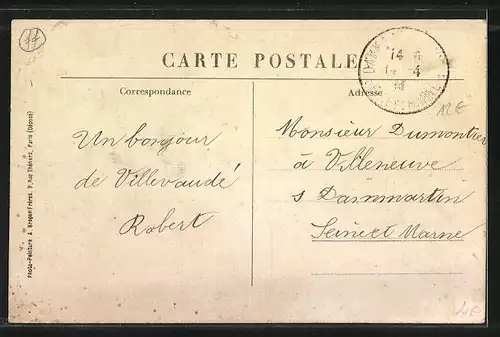 CARTE POSTALE
Correspondance
Adresse
Un bonjour
de Villevaudé
Robert
Monsieur Dumontier
à Villeneuve
s Dammartin
Seine et Marne
14
4
Photo-Peinture A. Breger Frères. 9, rue Thénard, Paris (Déposé)